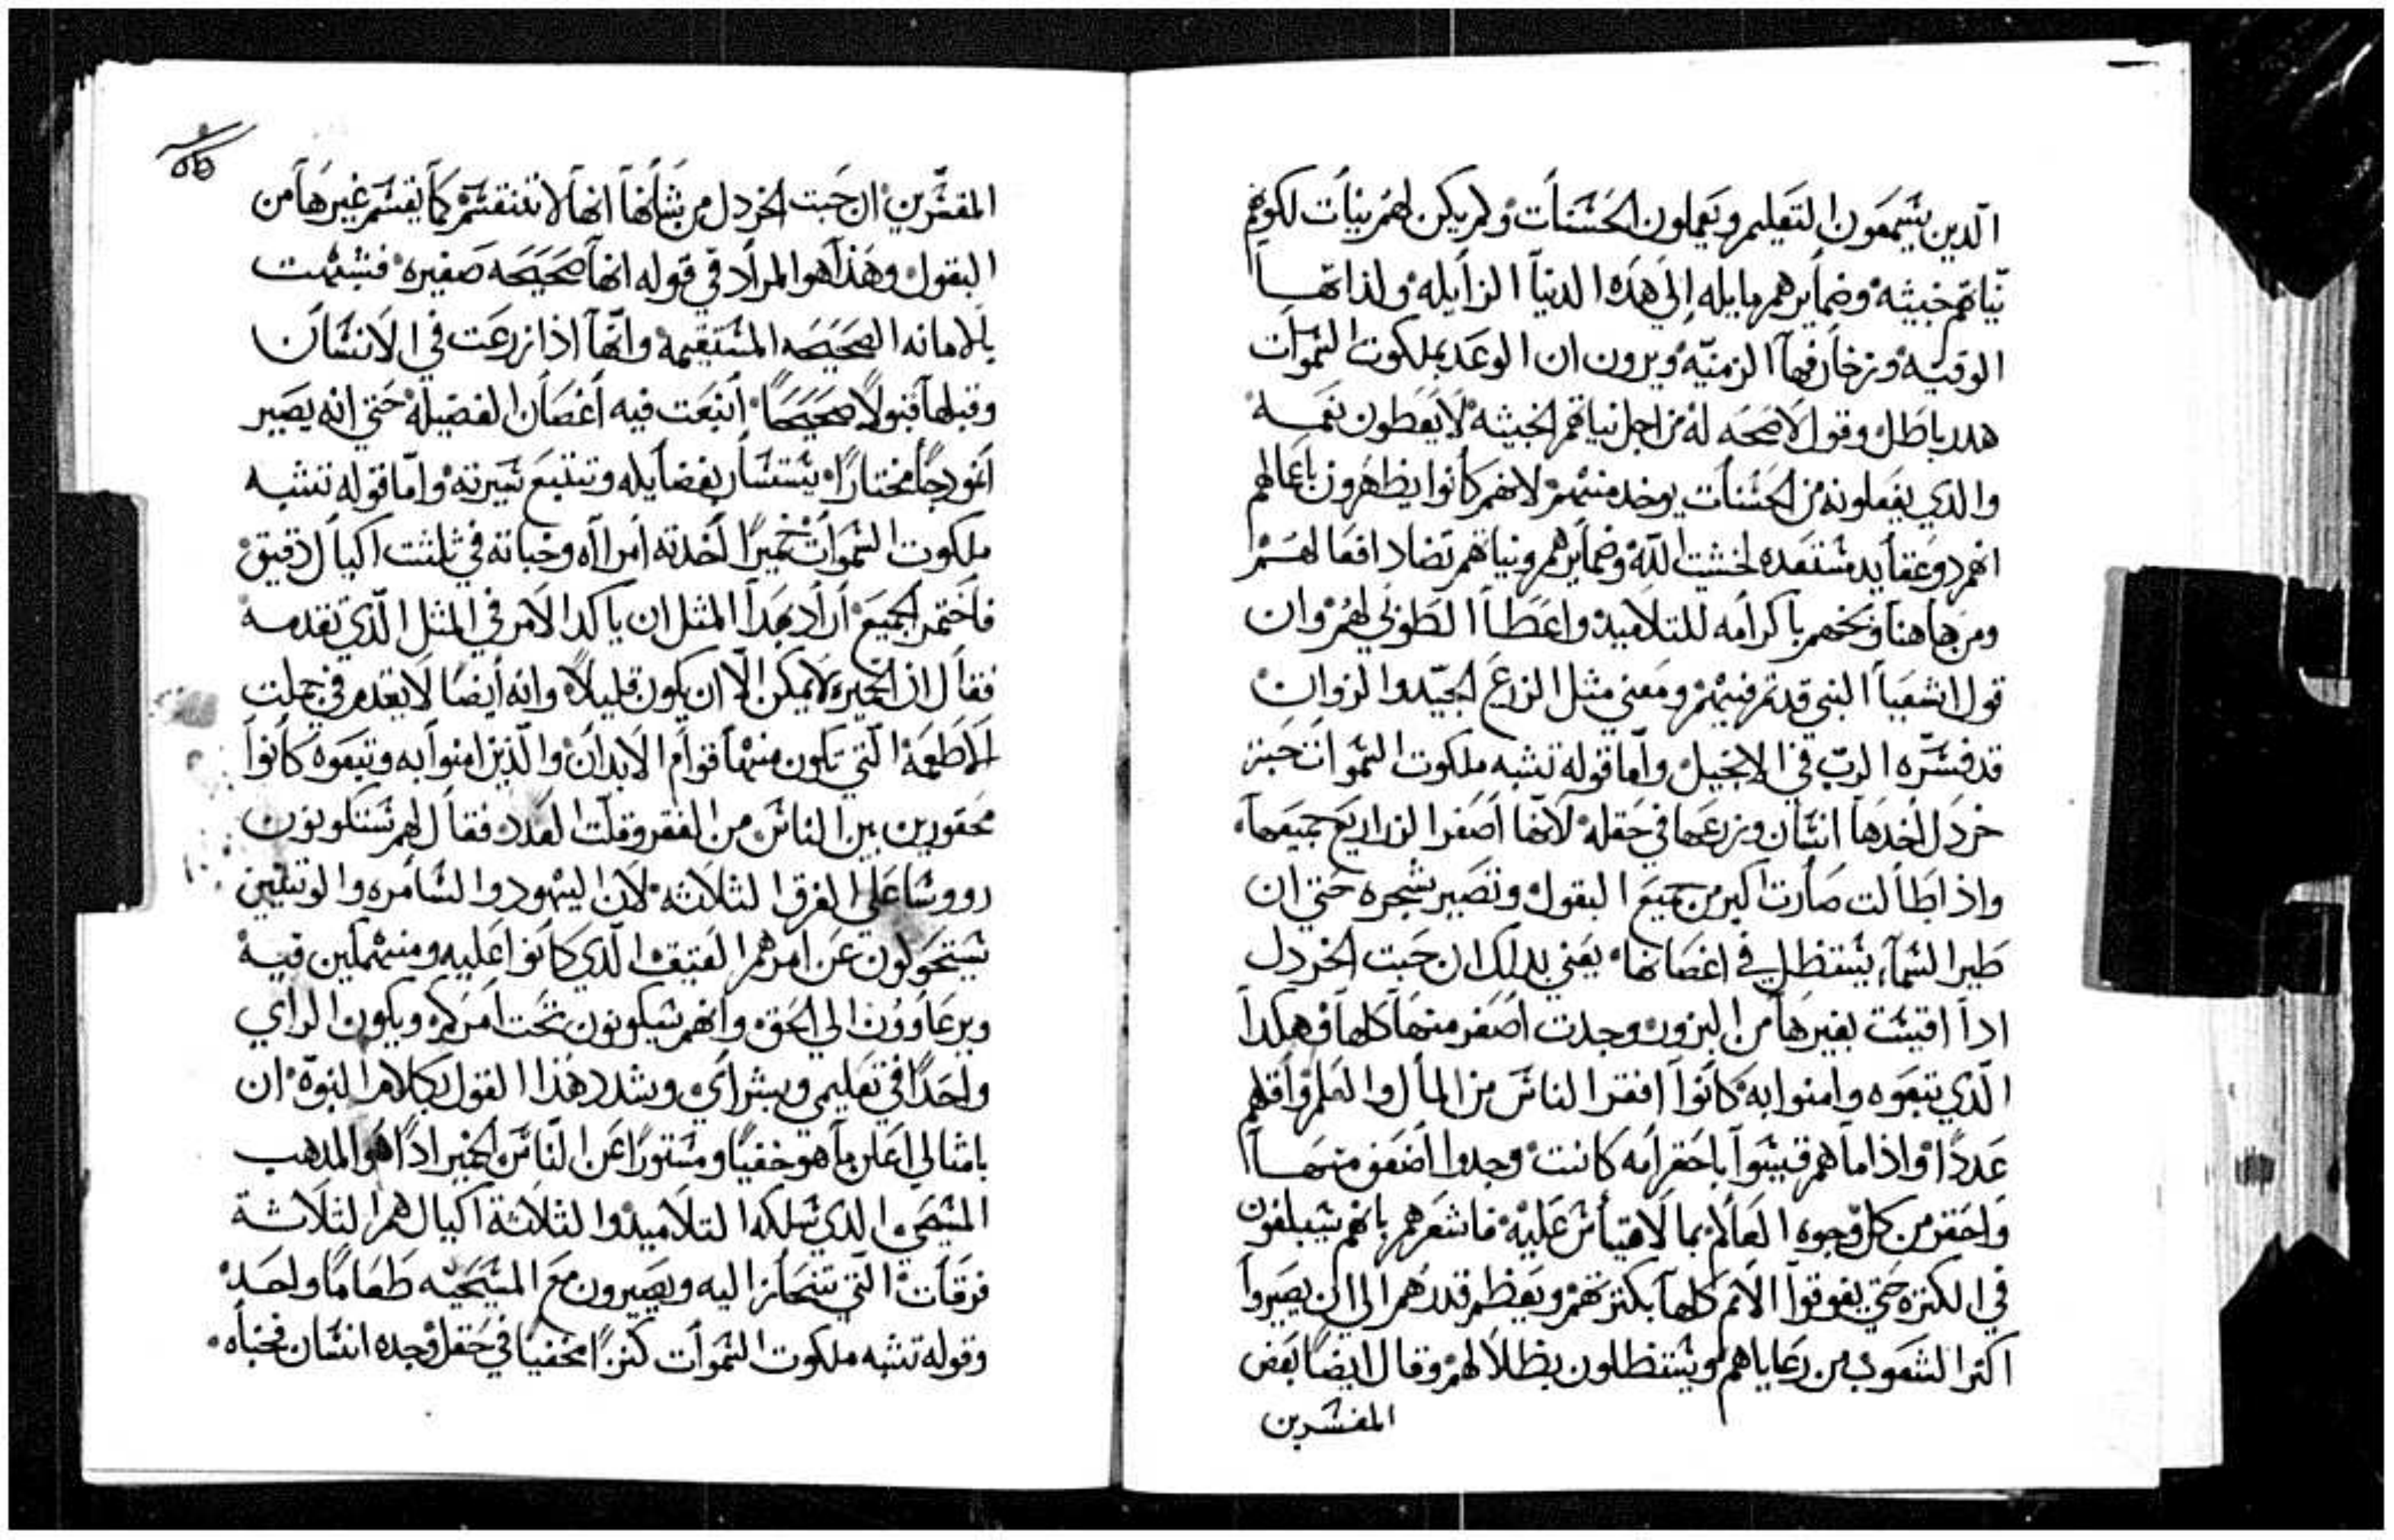 الدين يسمعون التعليم ويعملون الحسنات ولم يكن لهم نيات لكونهم
نياتهم خبيثه وضمايرهم مايله إلى هذه الدنيا الزايله ولذاتها
الوقتيه وزخارفها الزمنيه ويرون ان الوعد بملكوت السموات
هدد باطل وقول لا صحه له من اجل نياتهم الخبيثه لا يعطون نعمه
والدي يفعلونه من الحسنات يوخد منهم لانهم كانوا يظهرون باعمالهم
انهم دو عقايد مستعده لخشيت الله وضمايرهم ونياتهم تضاد افعالهم
ومن هاهنا وبخهم باكرامه للتلاميد واعطا الطوبي لهم وان
قول اشعيا النبي قد تم فيهم ومعني مثل الزرع الجيد والزوان
قد فسره الرب في الانجيل واما قوله تشبه ملكوت السموات حبة
خردل أخدها انسان وزرعها في حقله لانها اصغر الزراريع جميعها
واذا طالت صارت اكبر من جميع البقول وتصير شجره حتي ان
طير السماء يستظل في اغصانها يعني بدلك ان حبت الخردل
ادا اقيست بغيرها من البزور وجدت اصغر منها كلها وهكدا
الدي تبعوه وامنوا به كانوا افقر الناس من المال والعلم واقلهم
عددا واذا ما هم قيسوا باحقر امه كانت وجدوا اضعف منها
واحقر من كل وجوه العالم بما لا قياس عليه فاشعرهم بانهم سيبلغون
في الكثره حتي يفوقوا الامم كلها بكثرتهم ويعظم قدرهم الي ان يصيروا
اكثر الشعوب من رعاياهم ويستظلون بظلالهم وقال ايضا بعض
المفسرين
المفسرين ان حبت الخردل من شأنها انها لا تنقسم كما يقسم غيرها من
البقول وهذا هو المراد في قوله انها صحيحه صغيره فشبهت
بالامانه الصحيحه المستقيمه وانها اذا زرعت في الانسان
وقبلها قبولا صحيحا أينعت فيه أغصان الفضيله حتي انه يصير
أنمودجا مختارا يستسار بفضايله وتتبع سيرته واما قوله تشبه
ملكوت السموات خميرا أخدته امرااه وخباته في ثلثت اكيال دقيق
فاختمر الجميع أراد بهدا المثل ان ياكد الامر في المثل الذي تقدمه
فقال ان الخميره لا يمكن الا ان يكون قليلا وانه أيضا لا يعدم في جملت
الاطعمة التي تكون منها قوام الابدان والذين امنوا به وتبعوه كانوا
محقورين بين الناس من الفقر وقلت العدد فقال لهم ستكونون
رووسا على الفرق الثلاثه لان اليهود والسامره والوتنيين
سيتحولون عن امرهم العتيق الذي كانوا عليه ومنهملين فيه
ويرعاوون الي الحق وانهم سيكونون تحت امركم ويكون الراي
واحدا في تعليمي وبشراي ويشدد هذا القول بكلام النبوة ان
بامثالي اعلن ما هو خفيا ومستورا عن الناس الخمير اذا هو المدهب
المسيحي الدي سلكه التلاميد والثلاثة اكيال هم الثلاثة
فرقات التي تنحاز اليه ويصيرون مع المسيحيه طعاما واحد
وقوله تشبه ملكوت السموات كنزا مخفيا في حقل وجده انسان فخباه